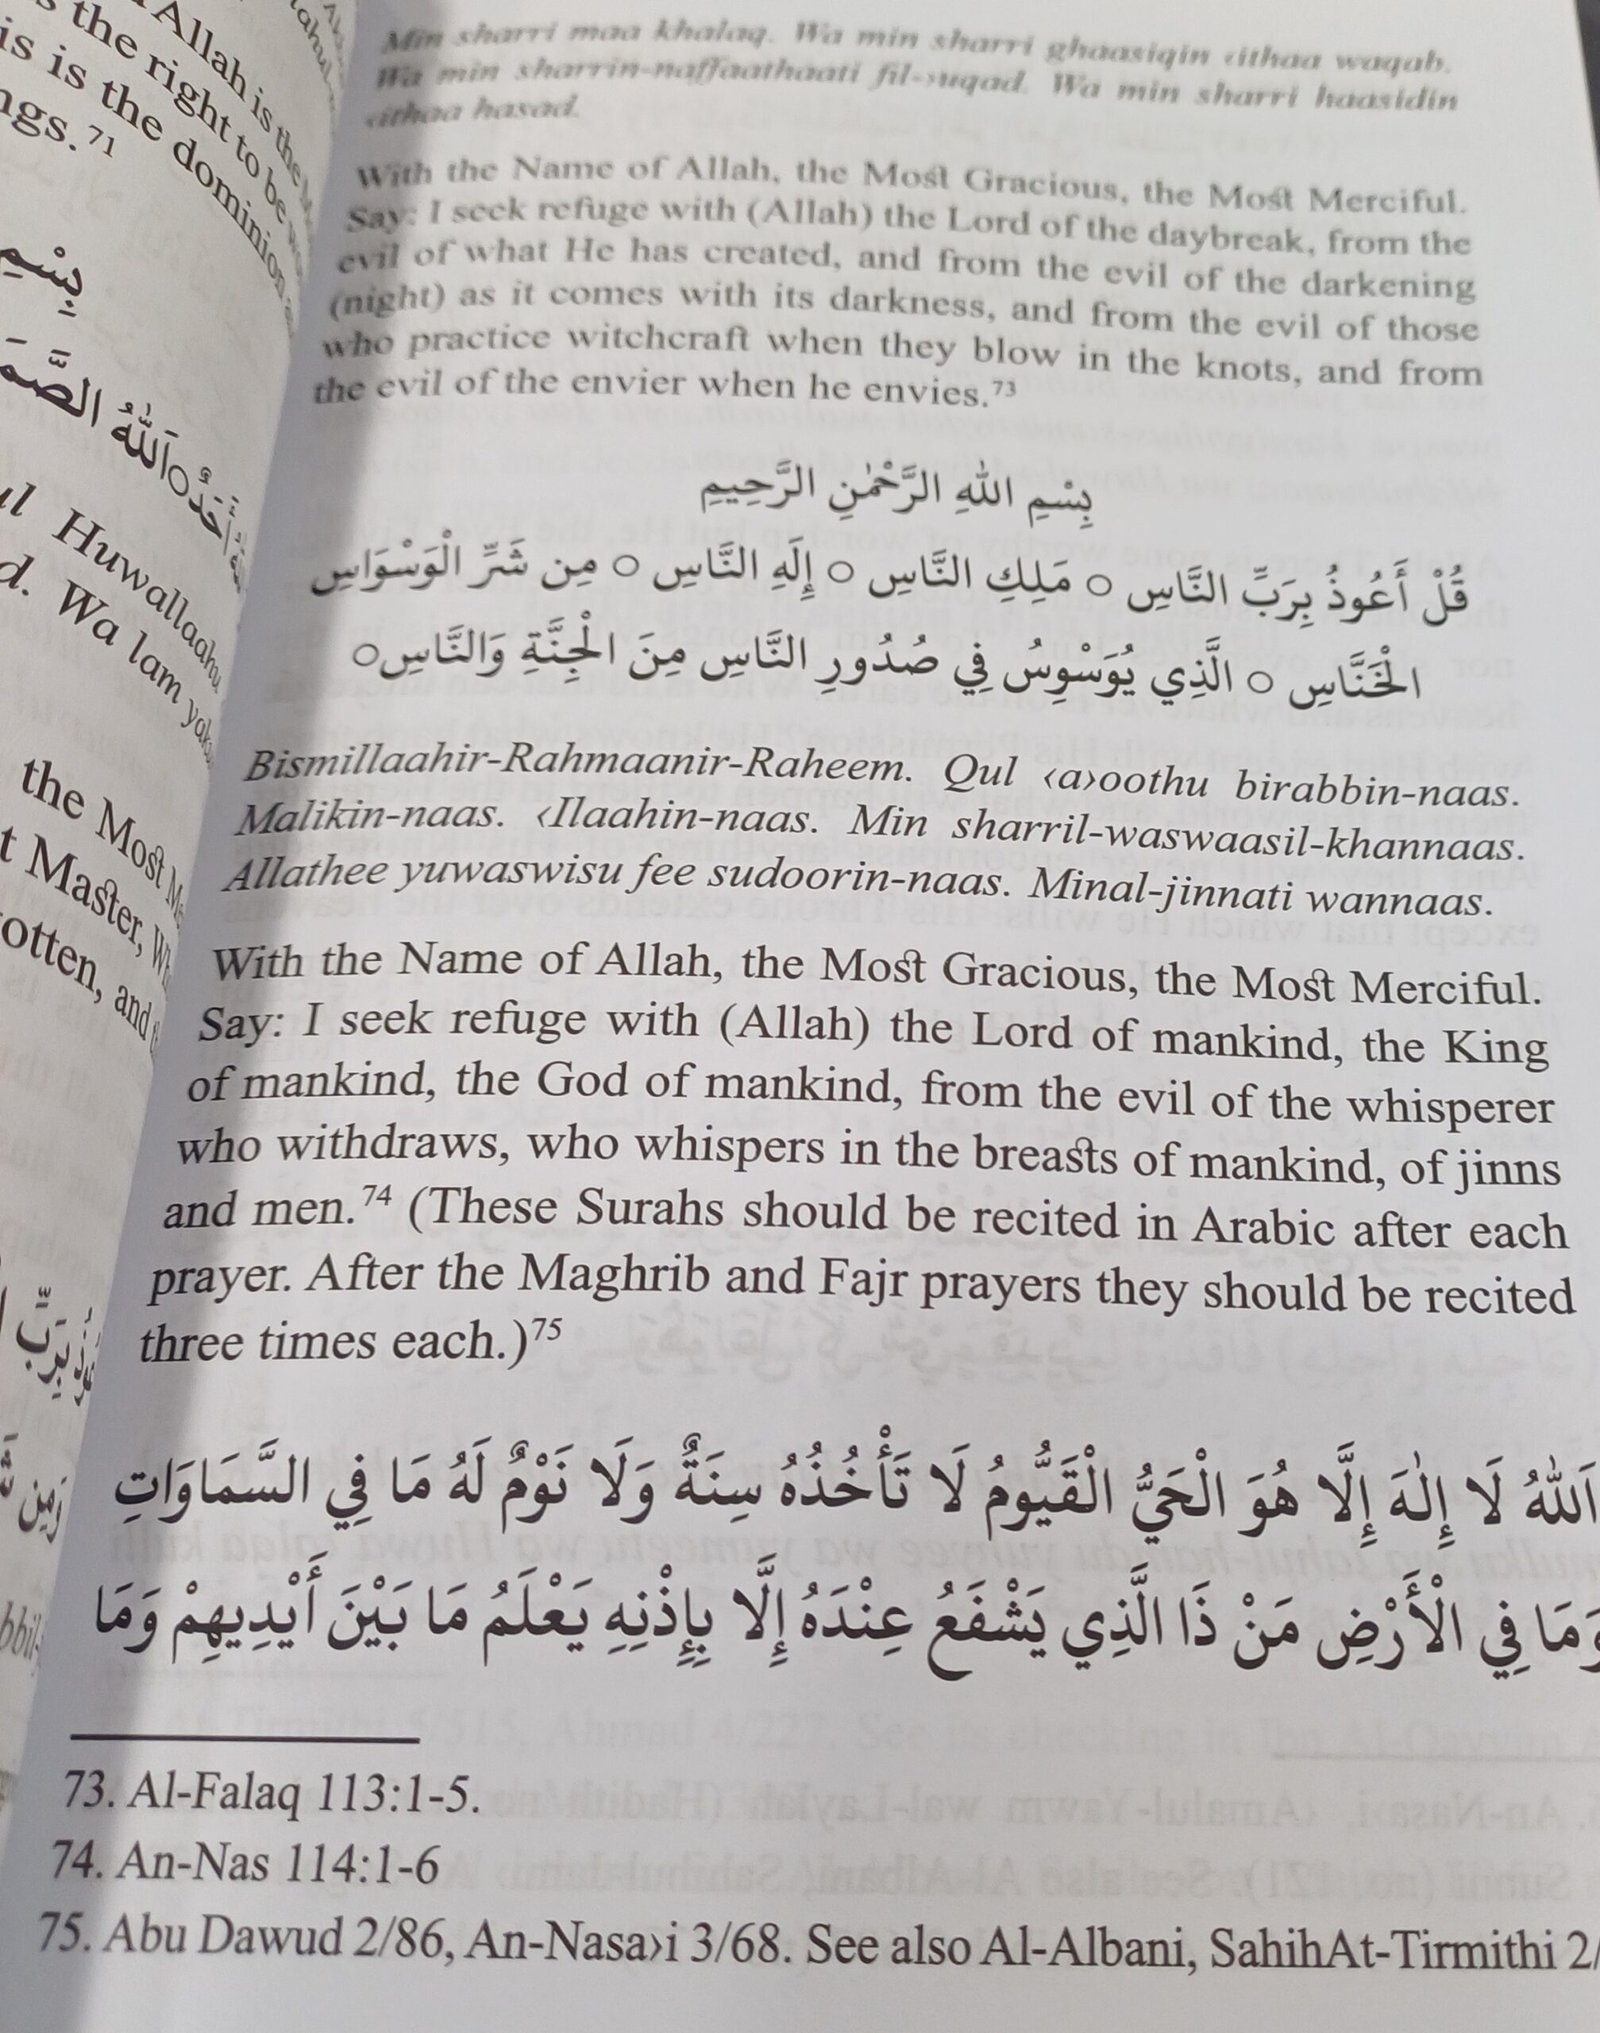 Allah is the
s the right to be
is is the dominion
ngs.71
بِسْمِ
أَحَدٌ ○ اَللهُ الصَّمَ
Huwallaahu
d. Wa lam yak
the Most M
t Master, Wh
otten, and
بِرَبِّ
وَمِن
Min sharri maa khalaq. Wa min sharri ghaasiqin ‹ithaa waqab.
Wa min sharrin-naffaathaati fil-›uqad. Wa min sharri haasidin
‹ithaa hasad.
With the Name of Allah, the Most Gracious, the Most Merciful.
Say: I seek refuge with (Allah) the Lord of the daybreak, from the
evil of what He has created, and from the evil of the darkening
(night) as it comes with its darkness, and from the evil of those
who practice witchcraft when they blow in the knots, and from
the evil of the envier when he envies.73
بِسْمِ اللهِ الرَّحْمٰنِ الرَّحِيمِ
قُلْ أَعُوذُ بِرَبِّ النَّاسِ ○ مَلِكِ النَّاسِ ○ إِلَهِ النَّاسِ ○ مِن شَرِّ الْوَسْوَاسِ
الْخَنَّاسِ ○ الَّذِي يُوَسْوِسُ فِي صُدُورِ النَّاسِ مِنَ الْجِنَّةِ وَالنَّاسِ○
Bismillaahir-Rahmaanir-Raheem. Qul ‹a›oothu birabbin-naas.
Malikin-naas. ‹Ilaahin-naas. Min sharril-waswaasil-khannaas.
Allathee yuwaswisu fee sudoorin-naas. Minal-jinnati wannaas.
With the Name of Allah, the Most Gracious, the Most Merciful.
Say: I seek refuge with (Allah) the Lord of mankind, the King
of mankind, the God of mankind, from the evil of the whisperer
who withdraws, who whispers in the breasts of mankind, of jinns
and men.74 (These Surahs should be recited in Arabic after each
prayer. After the Maghrib and Fajr prayers they should be recited
three times each.)75
اَللهُ لَا إِلٰهَ إِلَّا هُوَ الْحَيُّ الْقَيُّومُ لَا تَأْخُذُهُ سِنَةٌ وَلَا نَوْمٌ لَهُ مَا فِي السَّمَاوَاتِ
وَمَا فِي الْأَرْضِ مَنْ ذَا الَّذِي يَشْفَعُ عِنْدَهُ إِلَّا بِإِذْنِهِ يَعْلَمُ مَا بَيْنَ أَيْدِيهِمْ وَمَا
73. Al-Falaq 113:1-5.
74. An-Nas 114:1-6
75. Abu Dawud 2/86, An-Nasa›i 3/68. See also Al-Albani, SahihAt-Tirmithi 2/